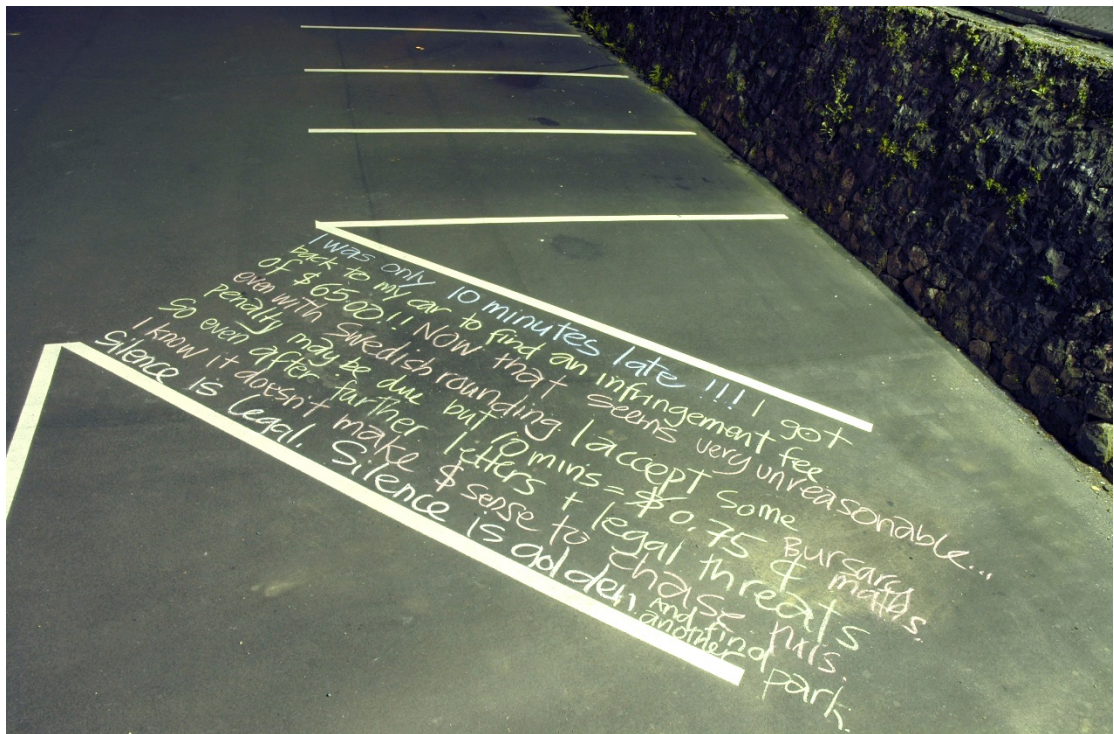 I was only 10 minutes late !!! I got
back to my car to find an infringement fee
of $6500!! NOW that seems very unreasonable...
even with Swedish rounding I accept some
penalty may be due but 10 mins = $0.75 Bursary maths.
So even after farther letters + legal threats
I know it doesn't make $ sense to chase
Silence is legal. Silence is golden And find another park.